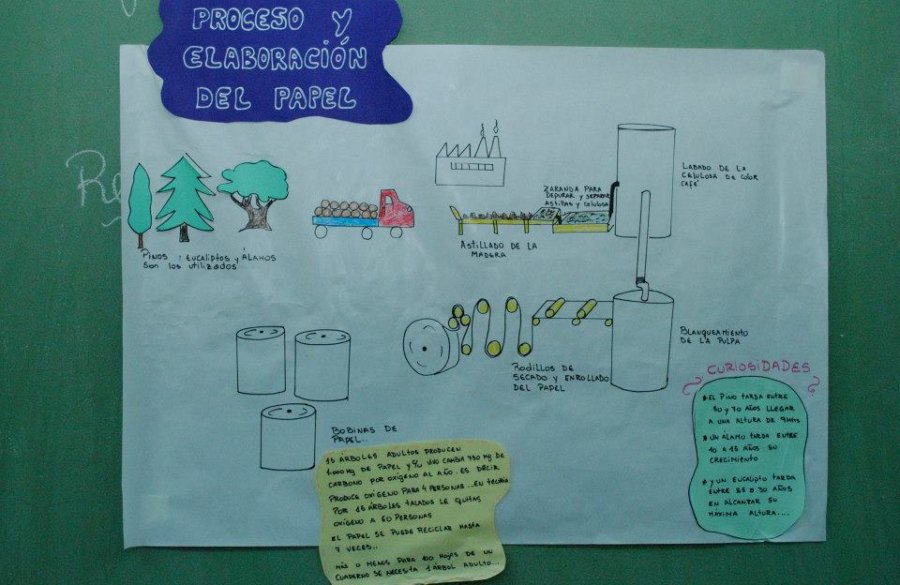 PROCESO Y
ELABORACIÓN
DEL PAPEL
Re
PINOS, EUCALIPTOS Y ÁLAMOS
SON LOS UTILIZADOS
ZARANDA PARA
DEPURAR Y SEPARAR
ASTILLAS Y CELULOSA
ASTILLADO DE LA
MADERA
LABADO DE LA
CELULOSA DE COLOR
CAFÉ
BLANQUEAMIENTO
DE LA PULPA
RODILLOS DE
SECADO Y ENROLLADO
DEL PAPEL
BOBINAS DE
PAPEL..
CURIOSIDADES
EL PINO TARDA ENTRE
Y 70 AÑOS LLEGAR
A UNA ALTURA DE
UN ÁLAMO TARDA ENTRE
10 A 15 AÑOS SU
CRECIMIENTO
Y UN EUCALIPTO TARDA
ENTRE 25 O 30 AÑOS
EN ALCANZAR SU
MÁXIMA ALTURA....
15 ÁRBOLES ADULTOS PRODUCEN
1.000 KG DE PAPEL Y C/ UNO CAMBIA KG DE
CARBONO POR OXÍGENO AL AÑO. ES DECIR
PRODUCE OXÍGENO PARA 4 PERSONAS...EN TEORÍA
POR 15 ÁRBOLES TALADOS LE QUITAS
OXÍGENO A 60 PERSONAS
EL PAPEL SE PUEDE RECICLAR HASTA
7 VECES..
MÁS O MENOS PARA 100 HOJAS DE UN
CUADERNO SE NECESITA 1 ÁRBOL ADULTO...